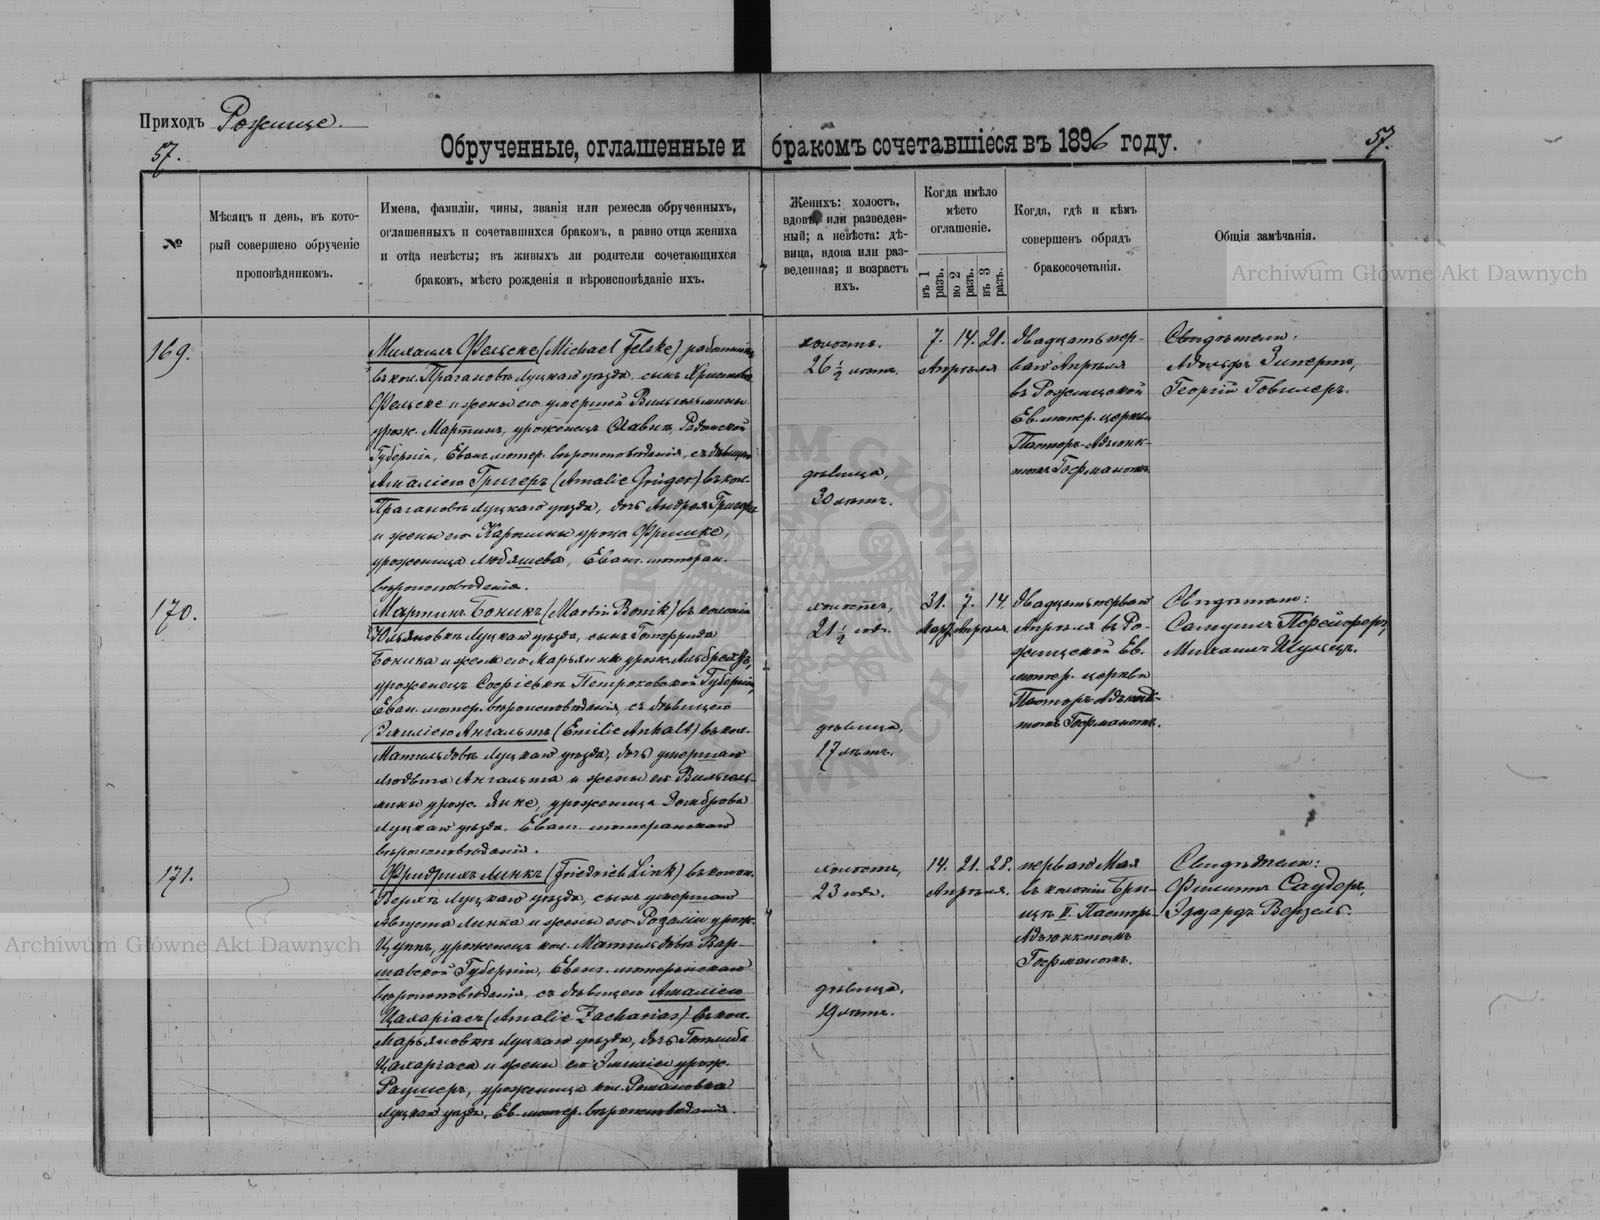 Приходъ Рожище.
57.
57.
Обрученные, оглашенные и бракомъ сочетавшіеся въ 1896 году.
№
Мѣсяцъ и день, въ кото-
рый совершено обрученіе
проповѣдникомъ.
Имена, фамиліи, чины, званія или ремесла обрученныхъ,
оглашенныхъ и сочетавшихся бракомъ, а равно отца жениха
и отца невѣсты; въ живыхъ ли родители сочетающихся
бракомъ, мѣсто рожденія и вѣроисповѣданіе ихъ.
Женихъ: холостъ,
вдовъ, или разведен-
ный; а невѣста: дѣ-
вица, вдова или раз-
веденная; и возрастъ
ихъ.
Когда имѣло
мѣсто
оглашеніе.
въ 1 разъ.
во 2 разъ.
въ 3 разъ.
Когда, гдѣ и кѣмъ
совершенъ обрядъ
бракосочетанія.
Общія замѣчанія.
Archiwum Główne Akt Dawnych
169.
Михаилъ Фельске (Michael Felske) работникъ
въ кол. Прагановѣ Луцкаго уѣзда, сынъ Христофа
Фельске и жены его умершей Вильгельмины
урож. Мартинъ, уроженецъ Радомской
Губерніи, Еванг. лютер. вѣроисповѣданія, съ дѣвицею
Амаліею Григеръ (Amalie Grüger) въ кол.
Прагановѣ Луцкаго уѣзда, дочь Андрея Григера
и жены его Каролины урож. Фришке,
уроженица Любашева, Еванг. лютеран.
вѣроисповѣданія.
холостъ.
26 ½ лѣтъ.
дѣвица,
30 лѣтъ.
7. 14. 21.
Апрѣля
двадцать пер-
ваго Апрѣля
въ Рожищской
Ев. лютер. церкви
Пасторъ-Адъюнк-
томъ Гофманомъ
Свидѣтели:
Адольфъ Зиперть,
Георгій Говилеръ.
170.
Мартинъ Боникъ (Martin Bonik) въ колоніи
Юльяновкѣ Луцкаго уѣзда, сынъ Готфрида
Боника и жены его Марьянны урож. Альбрехтъ,
уроженецъ Петроковской Губерніи,
Еван. лютер. вѣроисповѣданія, съ дѣвицею
Эмиліею Ангальтъ (Emilie Anhalt) въ кол.
Матильдовѣ Луцкаго уѣзда, дочь умершаго
Людвига Ангальта и жены его Вильгель-
мины урож. Янке, уроженица Домброва
Луцкаго уѣзда, Еванг. лютеранскаго
вѣроисповѣданія.
холостъ,
21 ½ года.
дѣвица,
17 лѣтъ.
31. 7. 14.
Март. Апрѣля.
двадцать перваго
Апрѣля въ Ро-
жищской Ев.
лютер. церкви
Пасторъ Адъюнк-
томъ Гофманомъ.
Свидѣтели:
Самуилъ
Михаилъ Шульцъ.
171.
Фридрихъ Линкъ (Friedrich Link) въ колон.
Луцкаго уѣзда, сынъ умершаго
Августа Линка и жены его Розаліи урож.
Цуппъ, уроженецъ кол. Матильдовъ Вар-
шавской Губерніи, Еванг. лютеранскаго
вѣроисповѣданія, съ дѣвицею Амаліею
Цахаріасъ (Amalie Zacharias) въ кол.
Марьяновкѣ Луцкаго уѣзда, дочь Готлиба
Цахаріаса и жены его Эмиліи урож.
Раумеръ, уроженица кол. Романовка
Луцкаго уѣзда, Ев. лютер. вѣроисповѣданія.
холостъ,
23 года.
дѣвица,
19 лѣтъ.
14. 21. 28.
Апрѣля.
перваго Мая
въ колоніи Бры-
щѣ II. Пасторъ
Адъюнктомъ
Гофманомъ.
Свидѣтели:
Филиппъ Саудеръ,
Эдуардъ Вензель.
Archiwum Główne Akt Dawnych